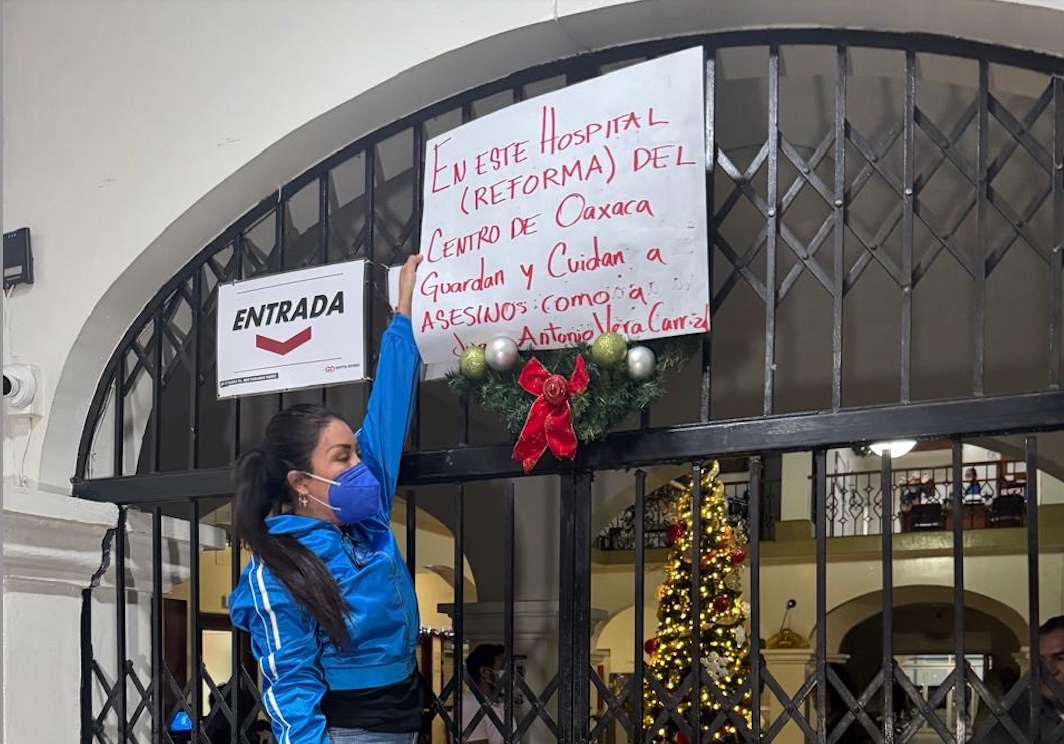 EN ESTE HOSPITAL
(REFORMA) DEL
CENTRO DE Oaxaca
Guardan y Cuidan a
ASESINOs como a
Antonio Vera Carrizal
ENTRADA